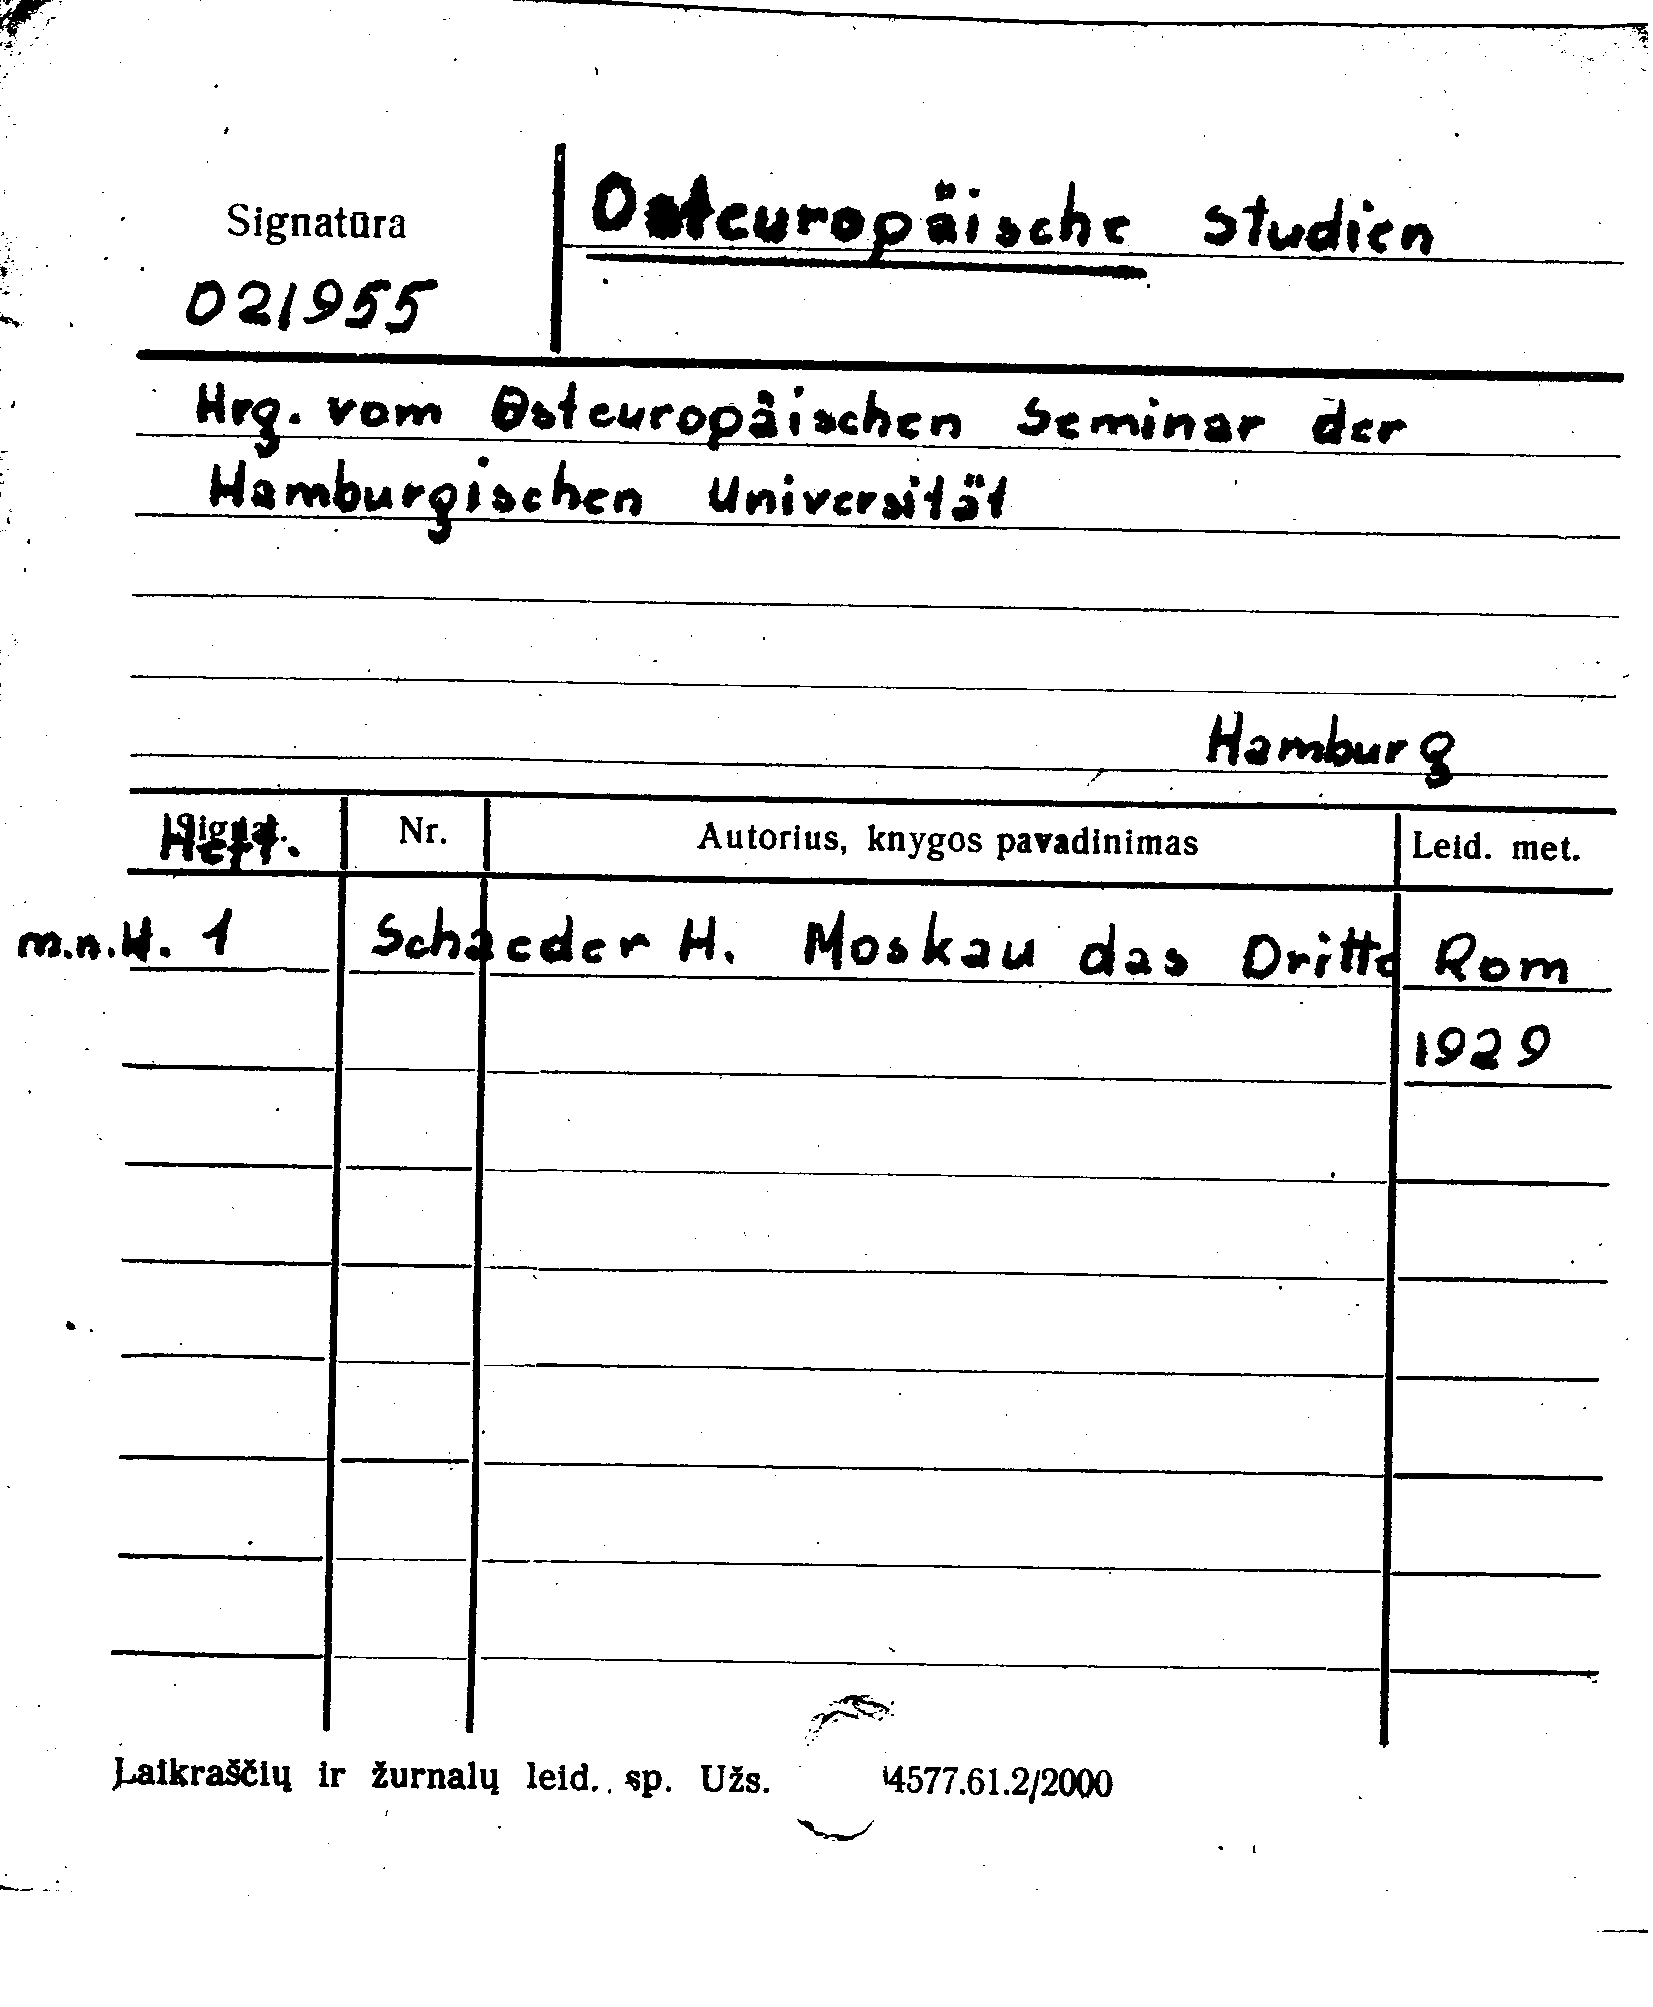 Signatūra
Osteuropäische Studien
021955
Hrg. vom Osteuropäischen Seminar der
Hamburgischen Universität
Hamburg
Signat. Nr. Autorius, knygos pavadinimas Leid. met.
Heft.
m.n.H. 1 Schaeder H. Moskau das Dritte Rom
1929
Laikraščių ir žurnalų leid. sp. Užs. 4577.61.2/2000